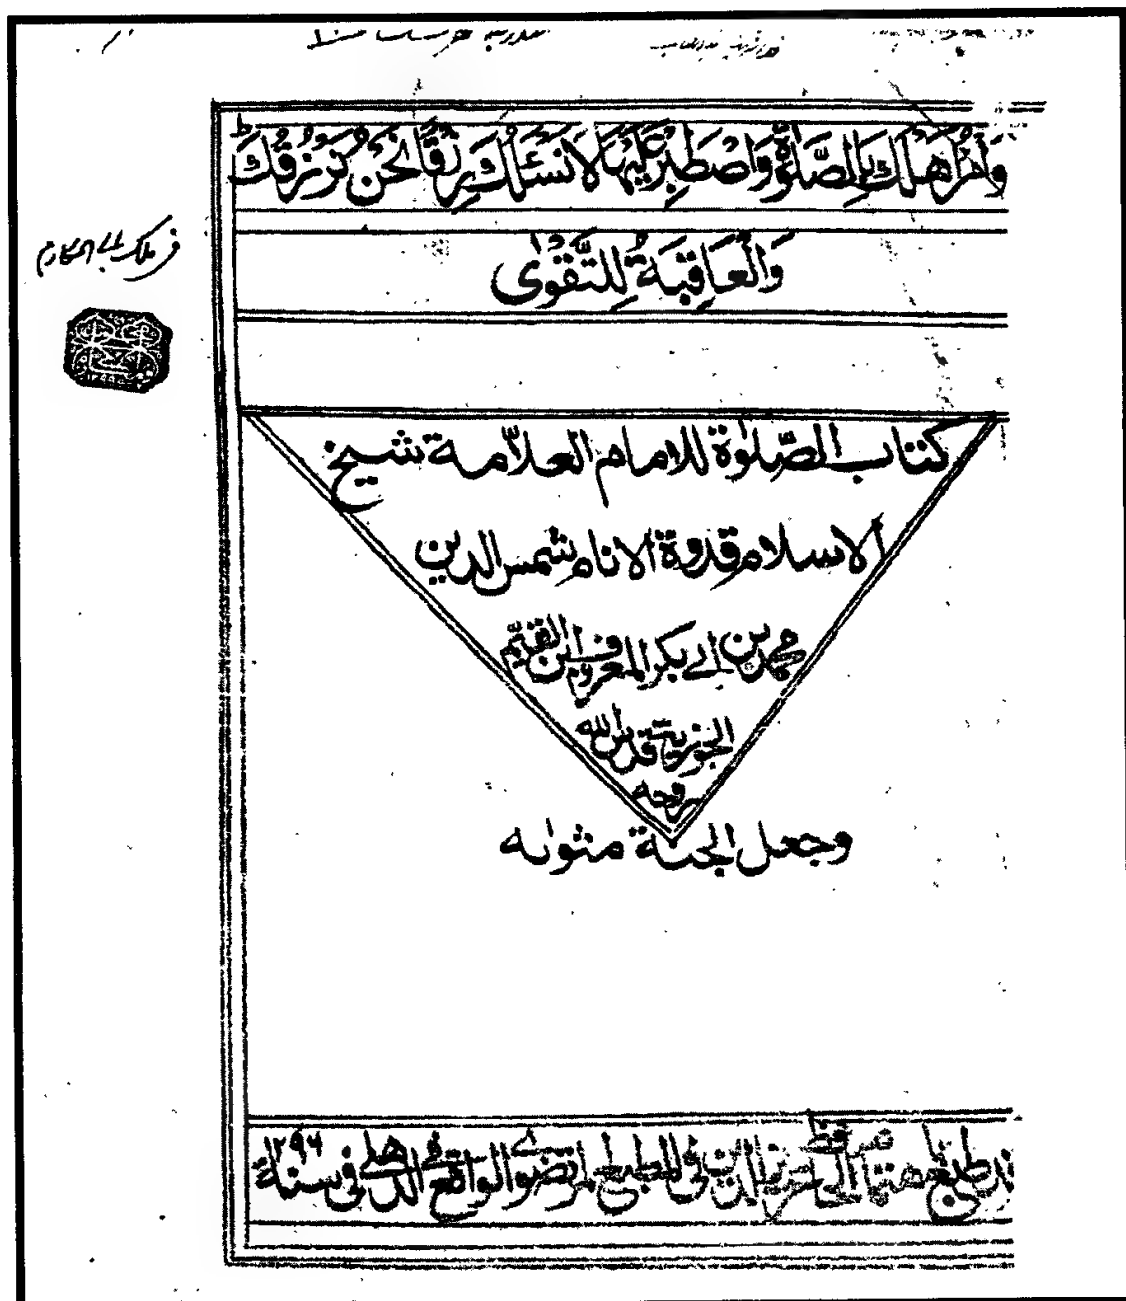 وَأْمُرْ أَهْلَكَ بِالصَّلٰوةِ وَاصْطَبِرْ عَلَيْهَا لَا نَسْئَلُكَ رِزْقًا نَحْنُ نَرْزُقُكَ ط
وَالْعَاقِبَةُ لِلتَّقْوٰى
فى ملك ابى المكارم
كتاب الصّلوٰة للامام العلّامة شيخ
الاسلام قدوة الانام شمس الدين
محمد بن ابى بكر المعروف بابن القيّم
الجوزية قدس الله
روحه
وجعل الجنة مثواه
قد طبع باهتمام الحافظ عزيز الدين فى المطبع المرتضوى الواقع فى الدهلى فى سنة ١٢٩٦